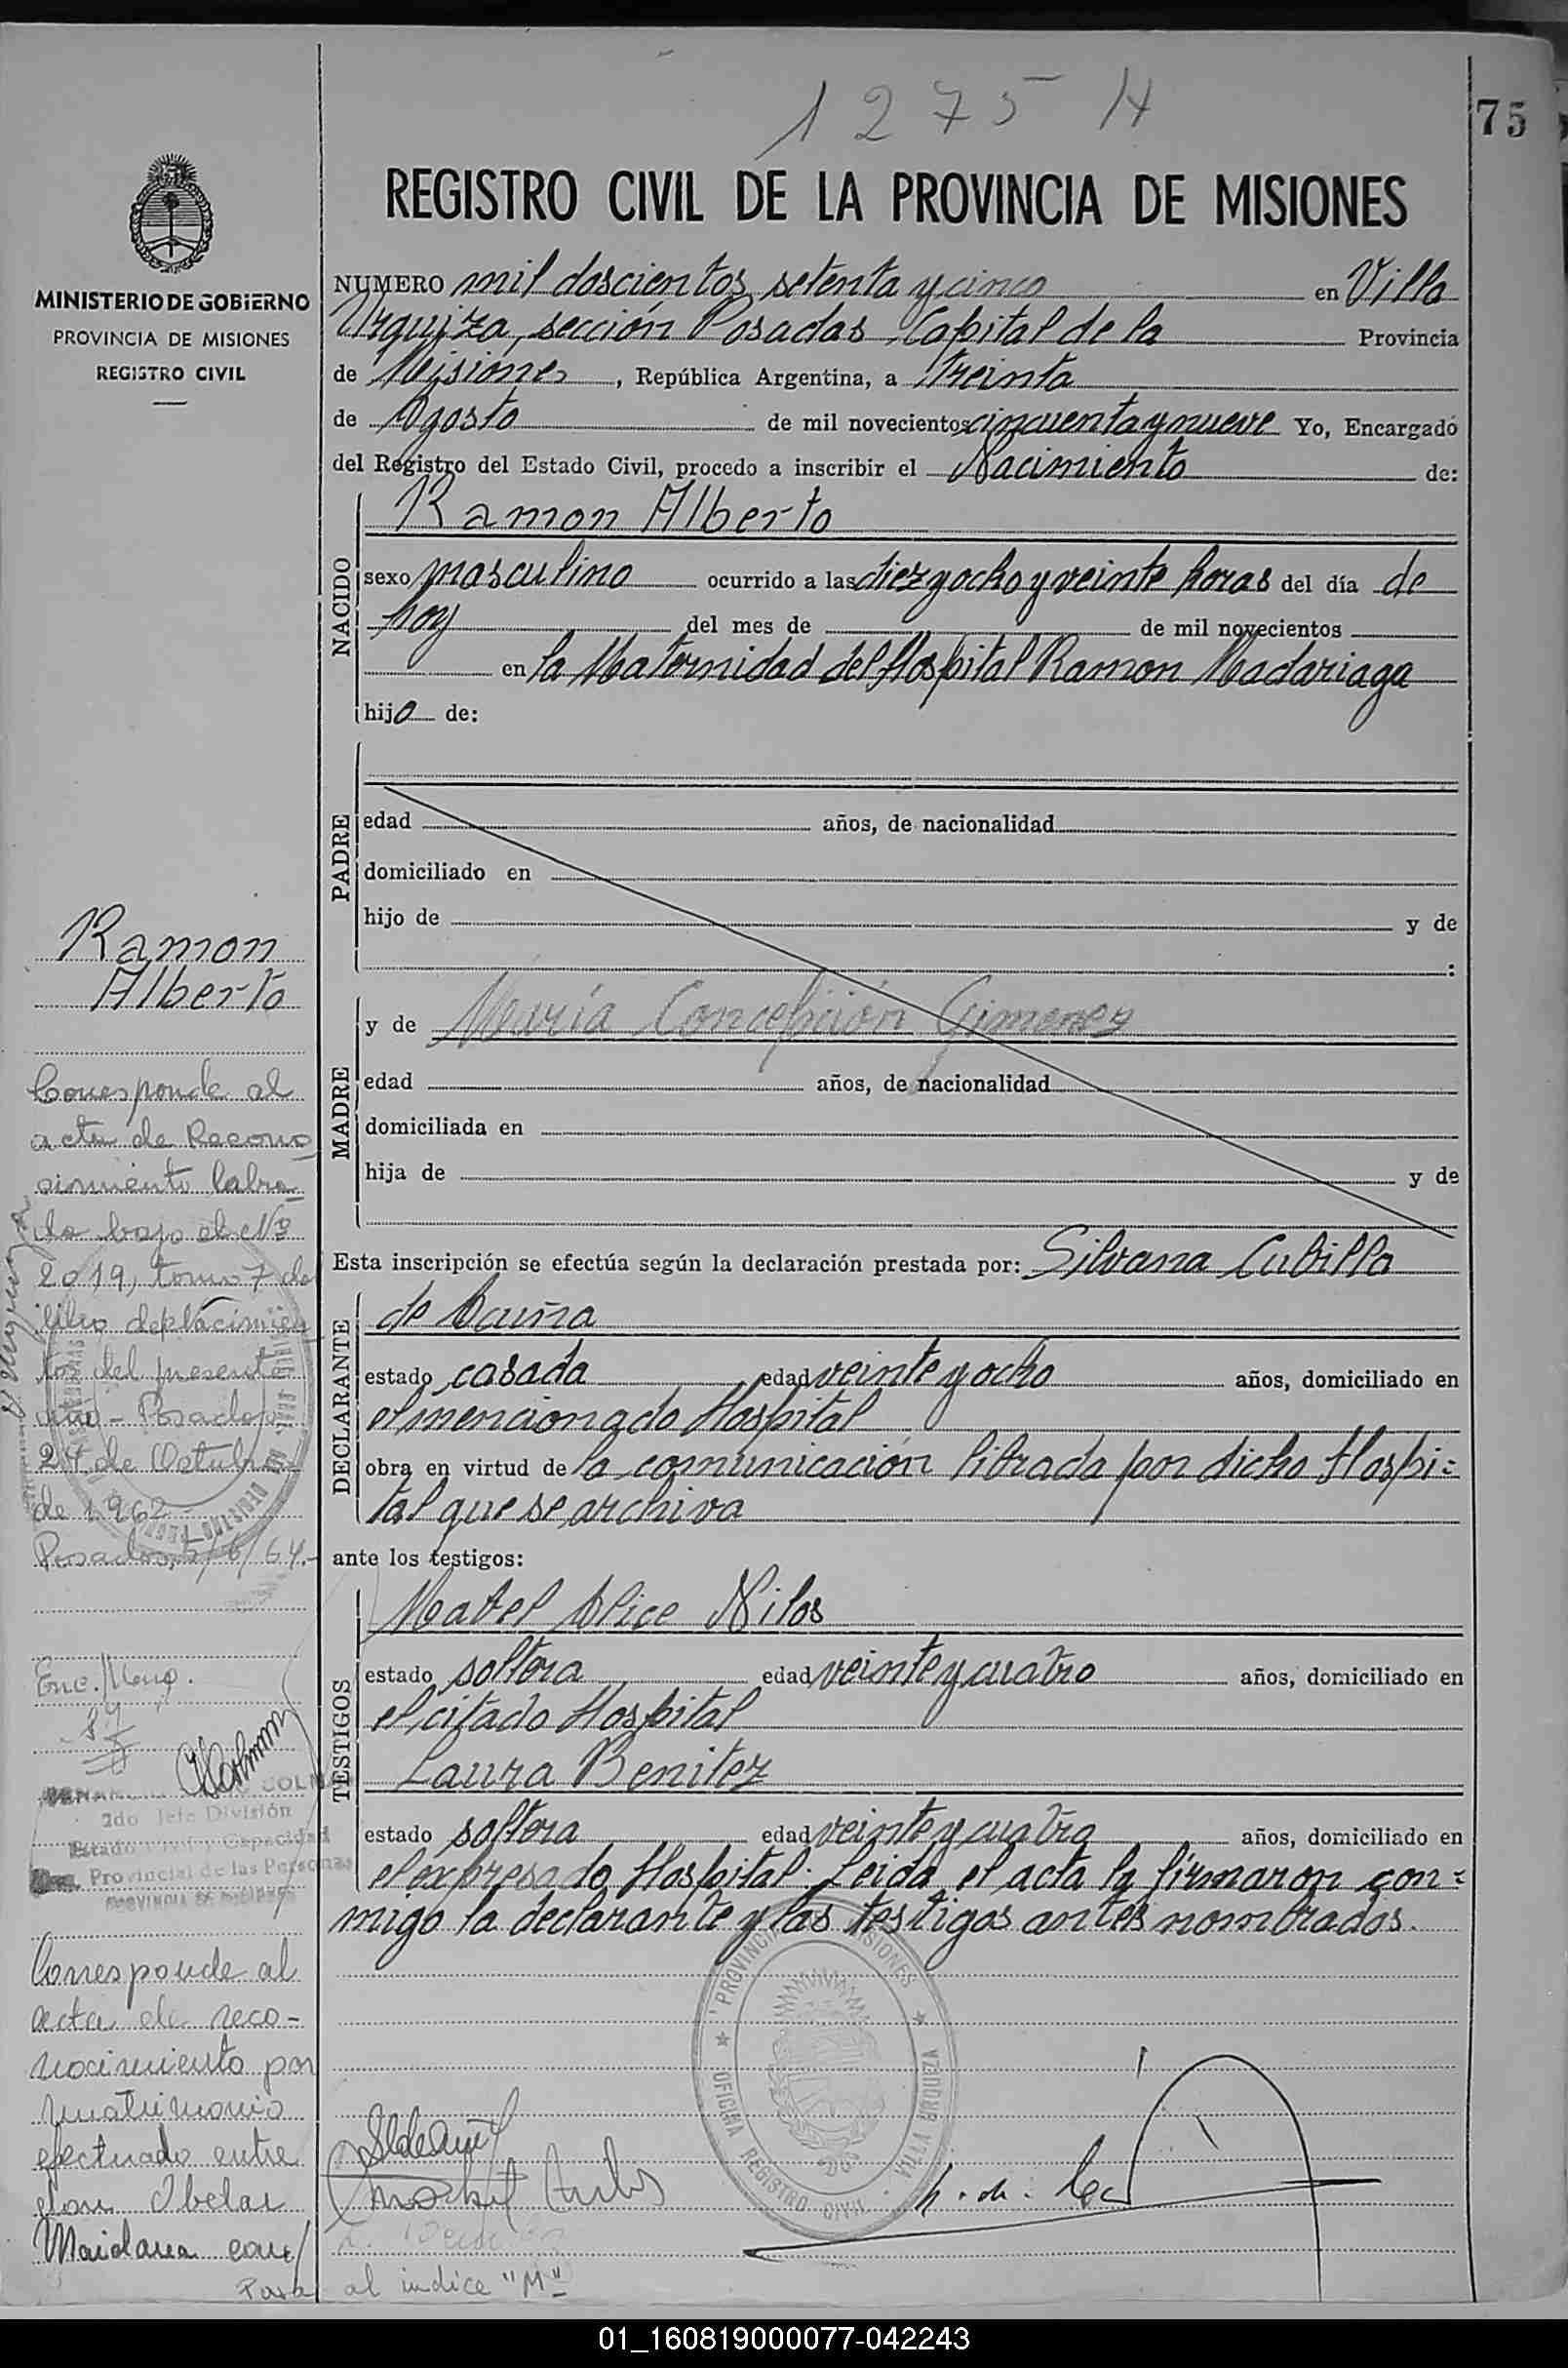 1275 H
75
REGISTRO CIVIL DE LA PROVINCIA DE MISIONES
MINISTERIO DE GOBIERNO
PROVINCIA DE MISIONES
REGISTRO CIVIL
NUMERO mil doscientos setenta y cinco en Villa
Urquiza, sección Posadas, Capital de la Provincia
de Misiones, República Argentina, a treinta
de Agosto de mil novecientos cincuenta y nueve Yo, Encargado
del Registro del Estado Civil, procedo a inscribir el Nacimiento de:
NACIDO
Ramon Alberto
sexo masculino ocurrido a las diez y ocho y veinte horas del día de
hoy del mes de de mil novecientos
en la Maternidad del Hospital Ramon Madariaga
hijo de:
PADRE
edad años, de nacionalidad
domiciliado en
hijo de y de
:
MADRE
y de María Concepción Gimenez
edad años, de nacionalidad
domiciliada en
hija de y de
Esta inscripción se efectúa según la declaración prestada por: Silvana Cubilla
DECLARANTE
de
estado casada edad veinte y ocho años, domiciliado en
el mencionado Hospital
obra en virtud de la comunicación librada por dicho Hospi=
tal que se archiva
ante los testigos:
TESTIGOS
Mabel Alice Nilos
estado soltera edad veinte y cuatro años, domiciliado en
el citado Hospital
Laura Benitez
estado soltera edad veinte y cuatro años, domiciliado en
el expresado Hospital. Leida el acta la firmaron con=
migo la declarante y las testigos antes nombrados.
Ramon
Alberto
Corresponde al
acta de Recono
cimiento labra
da bajo el Nº
2019, tomo 7 de
libro de Nacimien
tos del presente
año - Posadas
24 de Octubre
de 1962 -
Posadas, /6/64.-
Enc. 
COLMAN
2do Jefe División
Estado Civil y Capacidad
Provincial de las Personas
PROVINCIA DE MISIONES
Corresponde al
acta de reco-
nocimiento por
matrimonio
efectuado entre
don Abelar
Maidana con
Pasa al indice "M"
PROVINCIA MISIONES
OFICINA REGISTRO CIVIL
VILLA URQUIZA
01_160819000077-042243